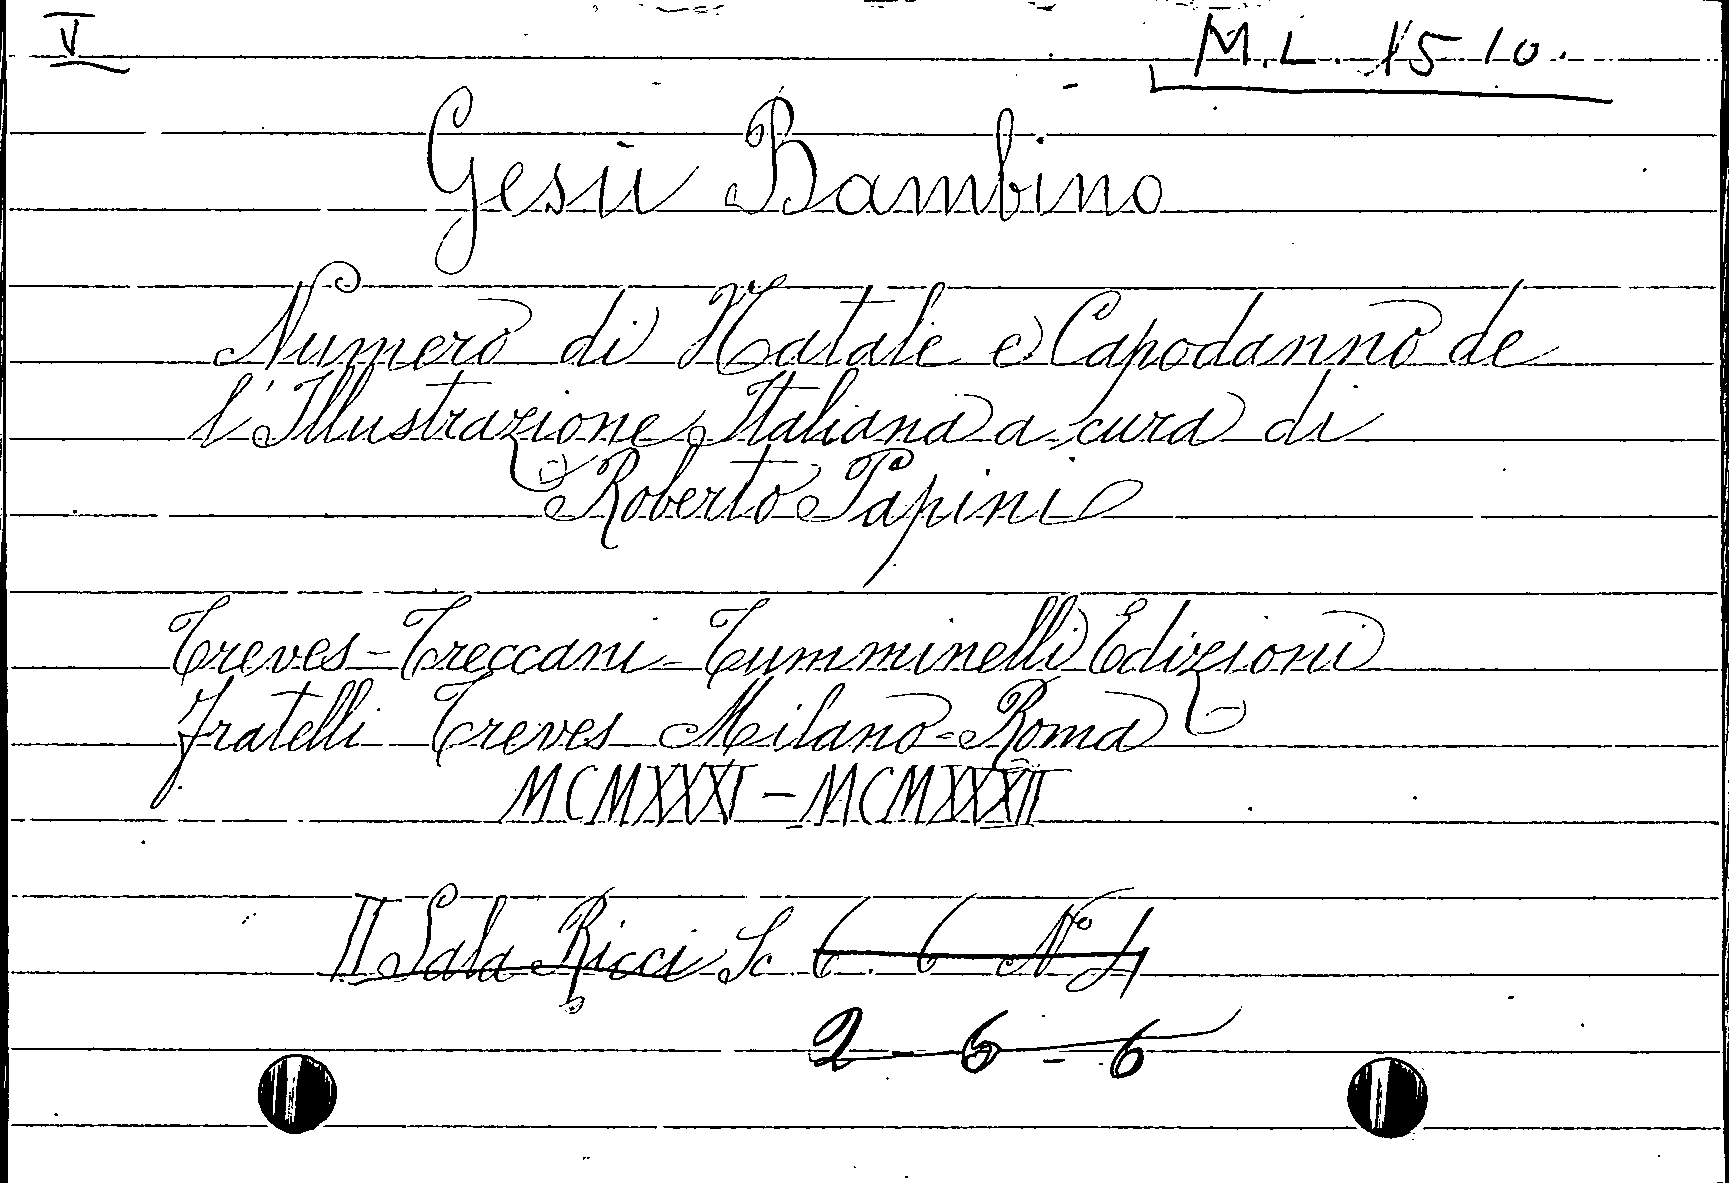 V
M.L. 15 10.
Gesù Bambino
Numero di Natale e Capodanno de
l'Illustrazione Italiana a cura di
Roberto Papini
Treves-Treccani-Tumminelli Edizioni
Fratelli Treves Milano-Roma
MCMXXXI-MCMXXXII
II Sala Ricci Sc 6. 6 N° 4
2-6-6